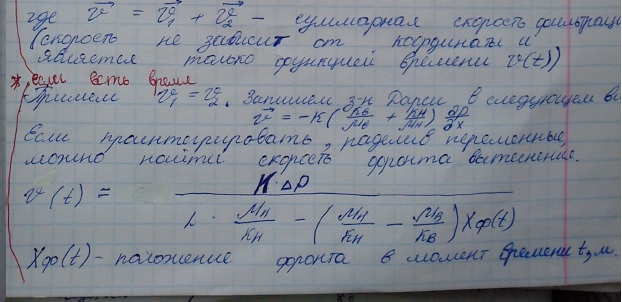 где v⃗ = v⃗₁ + v⃗₂ - суммарная скорость фильтраци
(скорость не зависит от координаты и
является только функцией времени v(t))
* если есть время
Примем v⃗₁ = v⃗₂. Запишем з-н Дарси в следующем ви
v⃗ = -K (kв/μв + kн/μн) ∂p/∂x
Если проинтегрировать, разделив переменные,
можно найти скорость фронта вытеснение.
v(t) = K·Δp / (L · μн/kн - (μн/kн - μв/kв) Xф(t))
Xф(t) - положение фронта в момент времени t, м.